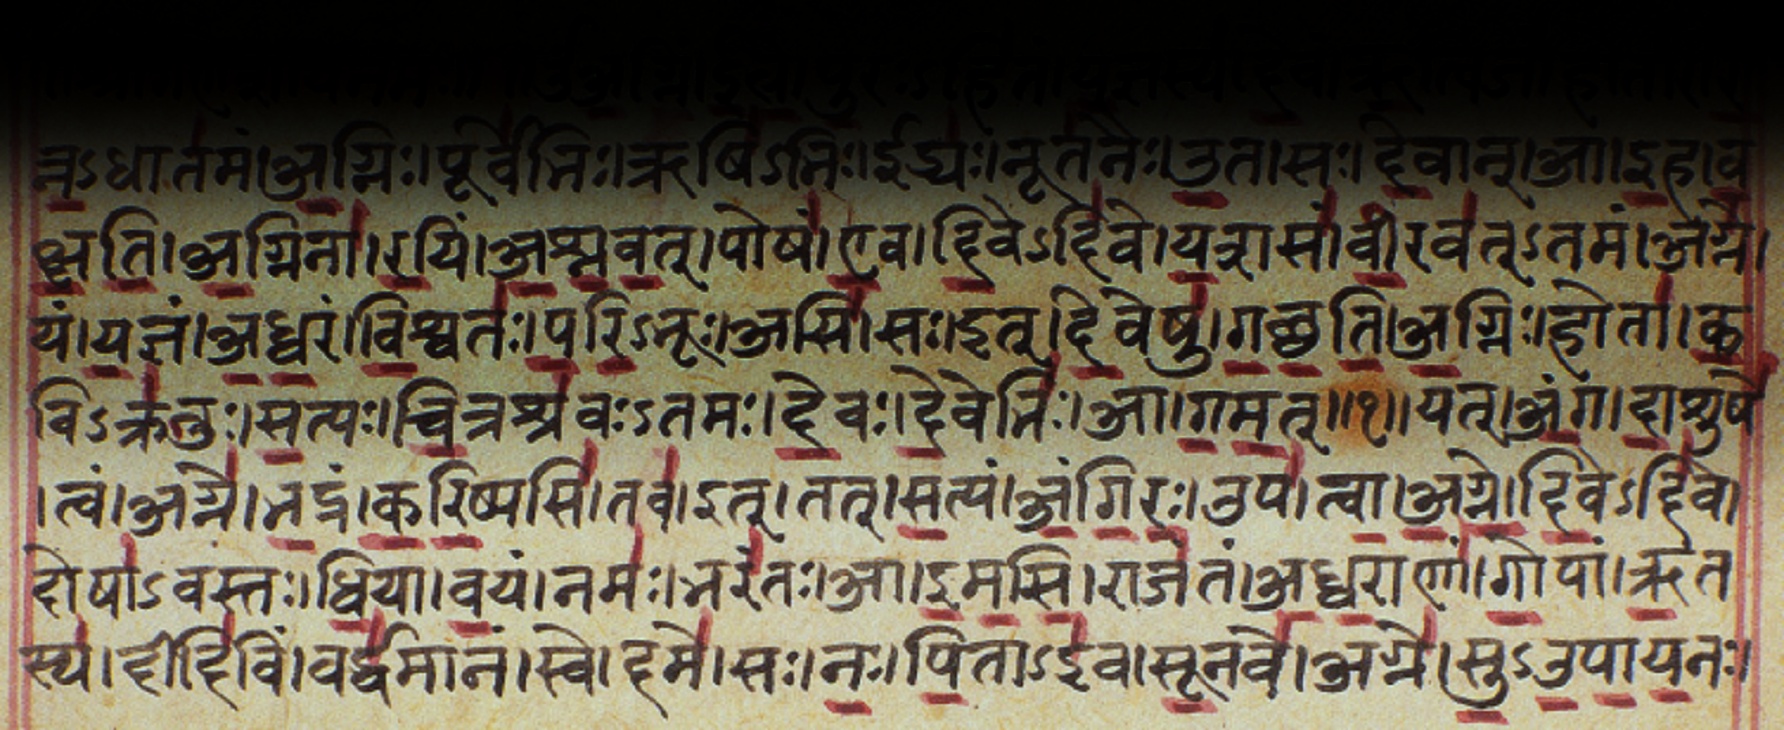 त्नऽधातमं।अग्निः।पूर्वेभिः।ऋषिऽभिः।ईड्यः।नूतनैः।उत।सः।देवान्।आ।इह।व
क्षति।अग्निना।रयिं।अश्नवत्।पोषं।एव।दिवेऽदिवे।यशसं।वीरवत्ऽतमं।अग्ने।
यं।यज्ञं।अध्वरं।विश्वतः।परिऽभूः।असि।सः।इत्।देवेषु।गच्छति।अग्निः।होता।क
विऽक्रतुः।सत्यः।चित्रश्रवःऽतमः।देवः।देवेभिः।आ।गमत्॥१॥यत्।अंग।दाशुषे
।त्वं।अग्ने।भद्रं।करिष्यसि।तव।इत्।तत्।सत्यं।अंगिरः।उप।त्वा।अग्ने।दिवेऽदिवे।
दोषाऽवस्तः।धिया।वयं।नमः।भरंतः।आ।इमसि।राजंतं।अध्वराणां।गोपां।ऋत
स्य।दीदिविं।वर्द्धमानं।स्वे।दमे।सः।नः।पिताऽइव।सूनवे।अग्ने।सुऽउपायनः।